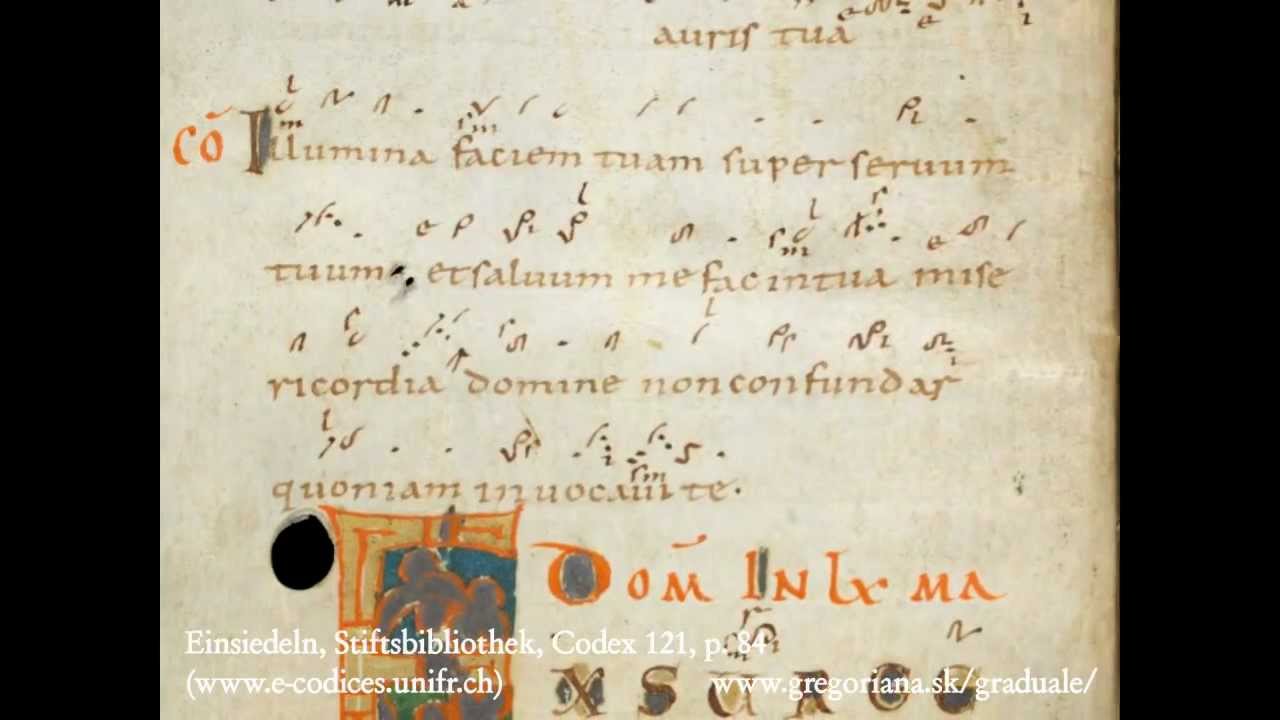 auris tua
CŌ Illumina faciem tuam super seruum
tuum, et saluum me fac in tua mise
ricordia domine non confundar
quoniam inuocaui te.
DOM̄ IN LX MA
XSUAGE
Einsiedeln, Stiftsbibliothek, Codex 121, p. 84
(www.e-codices.unifr.ch) www.gregoriana.sk/graduale/